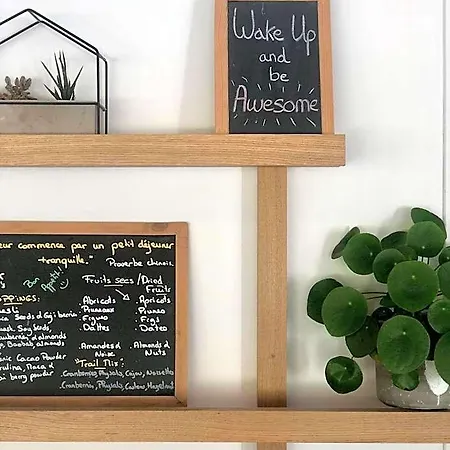 Wake Up
and
be
Awesome
eur commence par un petit déjeuner
tranquille."
Proverbe chinois.
Bon
Appétit!
OPPINGS:
Fruits secs / Dried
Fruits
esli
. Abricots
. Apricots
ca Seeds & Goji berries
. Pruneaux
. Prunes
. Figues
. Figs
. Dattes
. Dates
. Amandes &
Noix
. Almonds &
Nuts
nic Cacao Powder
"Trail Mix:
Cranberries, Physalis, Cajou, Noisettes
Cranberries, Physalis, Cashew, Hazelnut